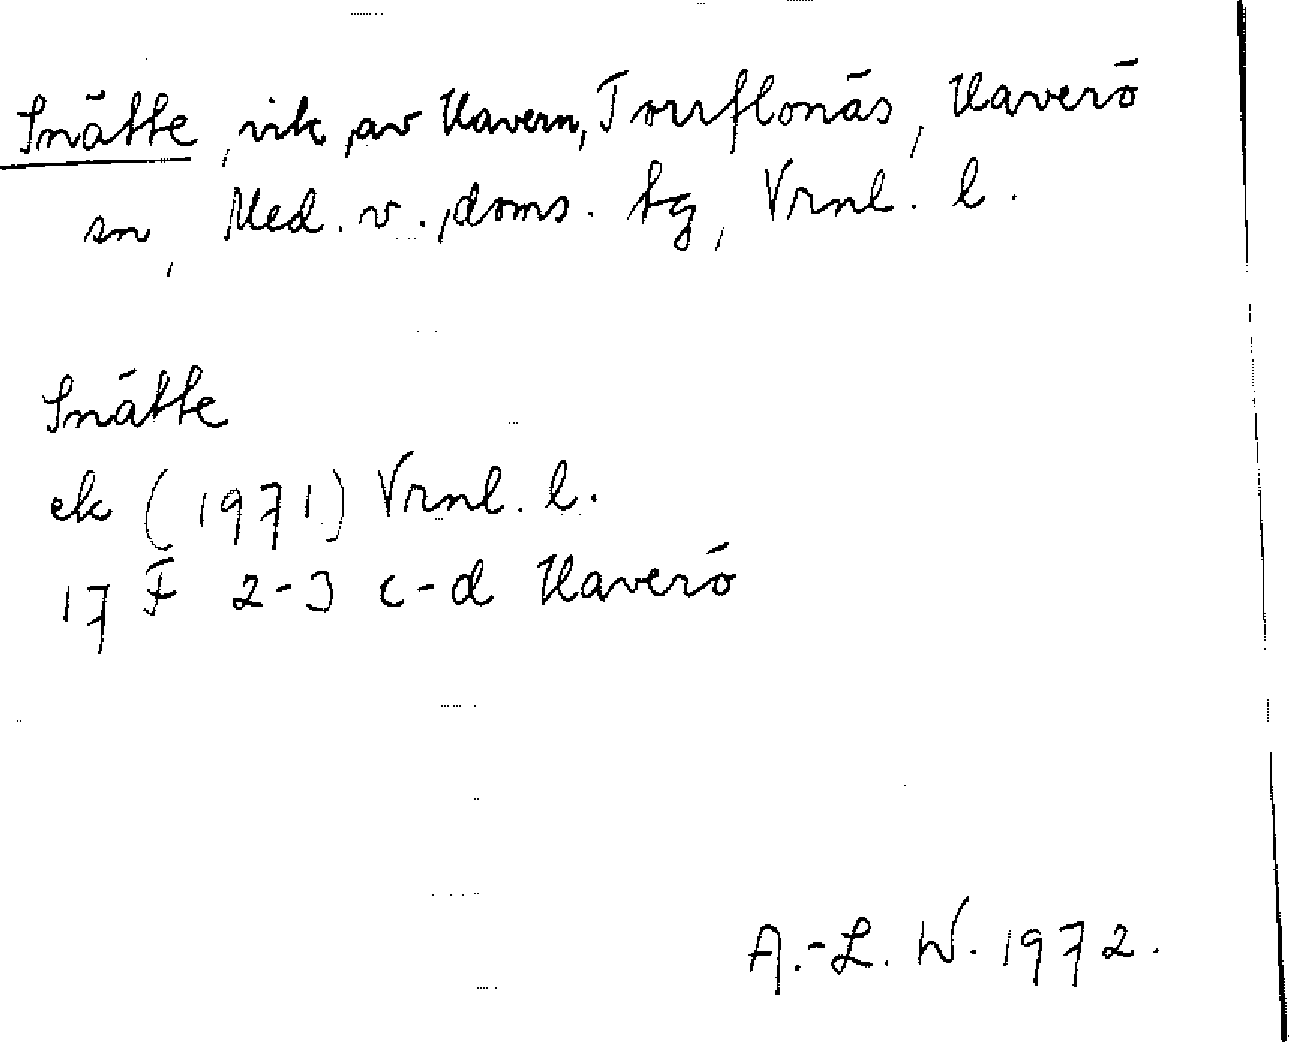 Snätte, vik, av Havern, Torrflonäs, Haverö
sn, Med. v., doms. tg, Vrnl. l.
Snätte
ek (1971) Vrnl. l.
17 F 2-3 c-d Haverö
A.-L. W. 1972.